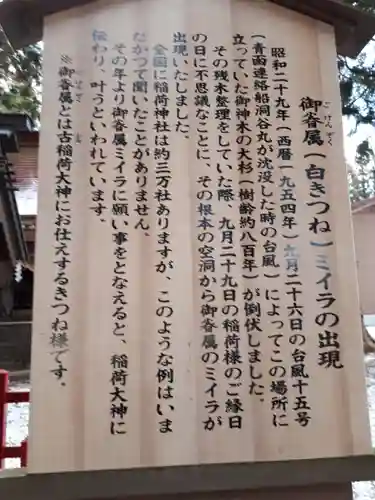 御眷属（白きつね）ミイラの出現
ごけんぞく
昭和二十九年（西暦一九五四年）九月二十六日の台風十五号
（青函連絡船洞谷丸が沈没した時の台風）によってこの場所に
立っていた御神木の大杉（樹齢約八百年）が倒伏しました。
その残木整理をしていた際、九月二十九日の稲荷様のご縁日
の日に不思議なことに、その根本の空洞から御眷属のミイラが
出現いたしました。
全国に稲荷神社は約三万社ありますが、このような例はいま
だかつて聞いたことがありません。
その年より御眷属ミイラに願い事をとなえると、稲荷大神に
伝わり、叶うといわれています。
※御眷属とは古稲荷大神にお仕えするきつね様です。